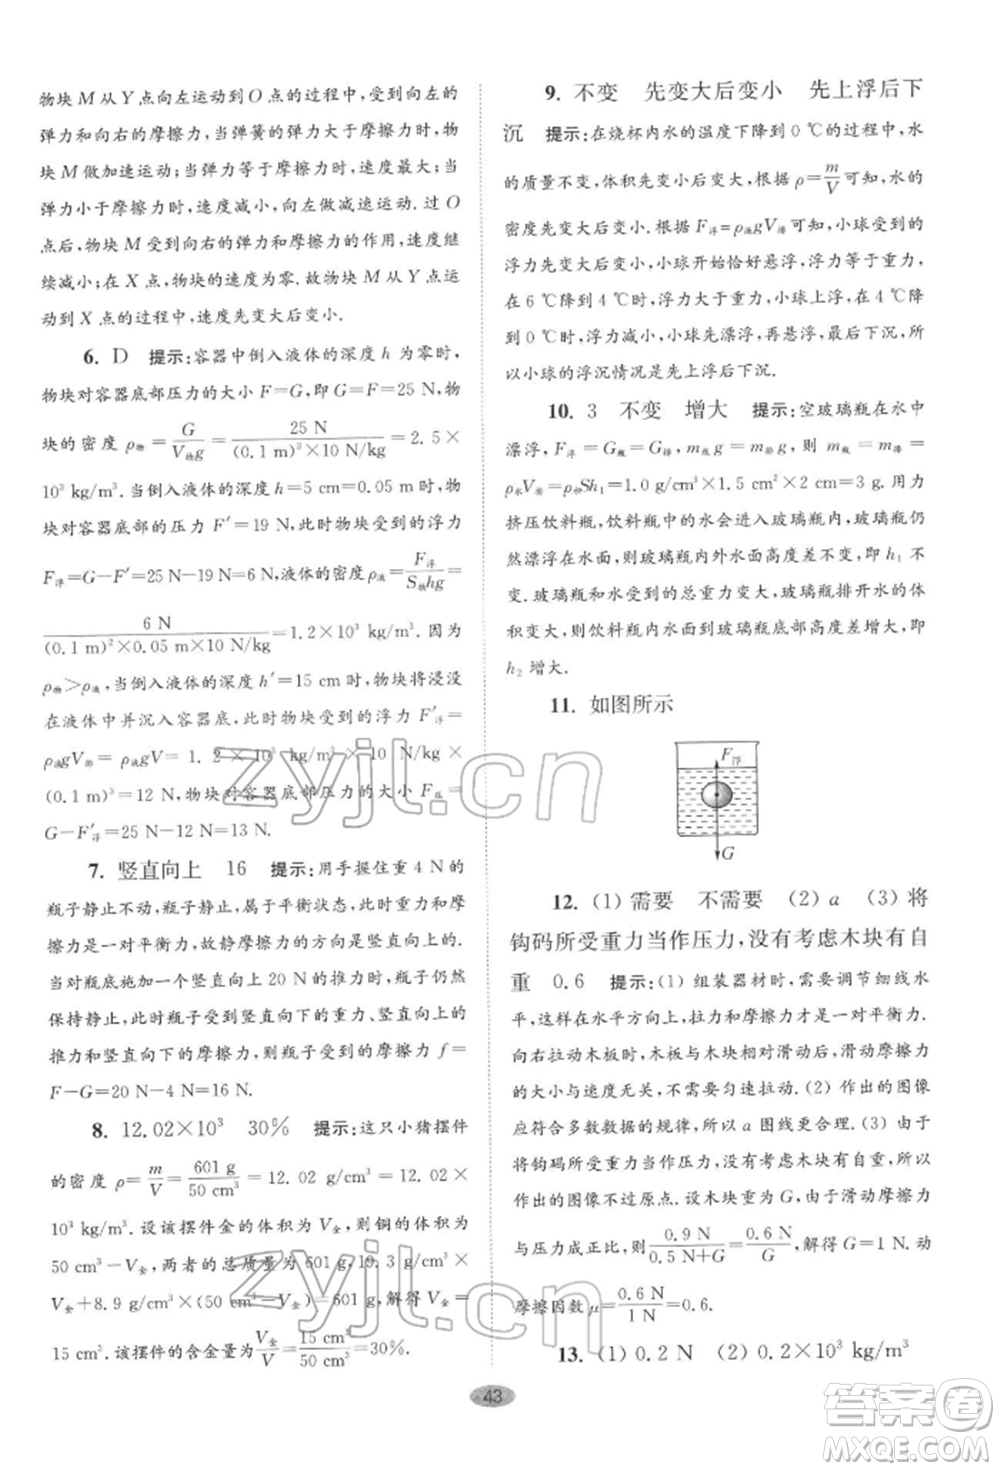 物块 M 从 Y 点向左运动到 O 点的过程中,受到向左的
弹力和向右的摩擦力,当弹簧的弹力大于摩擦力时,物
块 M 做加速运动;当弹力等于摩擦力时,速度最大;当
弹力小于摩擦力时,速度减小,向左做减速运动.过 O
点后,物块 M 受到向右的弹力和摩擦力的作用,速度继
续减小;在 X 点,物块的速度为零.故物块 M 从 Y 点运
动到 X 点的过程中,速度先变大后变小.
6. D 提示:容器中倒入液体的深度 h 为零时,
物块对容器底部压力的大小 F=G,即 G=F=25 N,物
块的密度 ρ物=G/V物g=25 N/(0.1 m)³×10 N/kg=2.5×
10³ kg/m³.当倒入液体的深度 h=5 cm=0.05 m 时,物
块对容器底部的压力 F′=19 N,此时物块受到的浮力
F浮=G-F′=25 N-19 N=6 N,液体的密度 ρ液=F浮/S物hg=
6 N/(0.1 m)²×0.05 m×10 N/kg=1.2×10³ kg/m³.因为
ρ物>ρ液,当倒入液体的深度 h′=15 cm 时,物块将浸没
在液体中并沉入容器底,此时物块受到的浮力 F′浮=
ρ液gV排=ρ液gV=1.2×10³ kg/m³×10 N/kg×
(0.1 m)³=12 N,物块对容器底部压力的大小 F压=
G-F′浮=25 N-12 N=13 N.
7. 竖直向上 16 提示:用手握住重 4 N 的
瓶子静止不动,瓶子静止,属于平衡状态,则重力和摩
擦力是一对平衡力,故静摩擦力的方向是竖直向上.
在瓶底施加一个竖直向上 20 N 的推力时,瓶子仍然
保持静止,此时瓶子受到竖直向下的重力、竖直向上的
推力和竖直向下的摩擦力,则瓶子受到的摩擦力 f=
F-G=20 N-4 N=16 N.
8. 12.02×10³ 30% 提示:这只小猪摆件
的密度 ρ=m/V=601 g/50 cm³=12.02 g/cm³=12.02×
10³ kg/m³.设该摆件金的体积为 V金,则铜的体积为
50 cm³-V金,该摆件的总质量为 601 g,19.3 g/cm³×
V金+8.9 g/cm³×(50 cm³-V金)=601 g,解得 V金=
15 cm³.该摆件的含金量为 V金/V=15 cm³/50 cm³=30%.
9. 不变 先变大后变小 先上浮后下
沉 提示:在烧杯内水的温度下降到 0 ℃的过程中,水
的质量不变,体积先变小后变大,根据 ρ=m/V可知,水的
密度先变大后变小.根据 F浮=ρ液gV排可知,小球受到的
浮力先变大后变小.小球开始恰好悬浮,浮力等于重力,
在 6 ℃降到 4 ℃时,浮力大于重力,小球上浮,在 4 ℃降
到 0 ℃时,浮力减小,小球先漂浮,再悬浮,最后下沉,所
以小球的浮沉情况是先上浮后下沉.
10. 3 不变 增大 提示:空玻璃瓶在水中
漂浮,F浮=G瓶=G排,m瓶g=m排g,m瓶=m排,则 m瓶=
ρ水V排=ρ水Sh₁=1.0 g/cm³×1.5 cm²×2 cm=3 g.用力
挤压饮料瓶,饮料瓶中的水会进入玻璃瓶中,玻璃瓶仍
然漂浮在水面,则玻璃瓶内外水面高度差不变,即 h₁ 不
变.玻璃瓶和水受到的总重力变大,玻璃瓶排开水的体
积变大,则饮料瓶内水面到玻璃瓶底部高度差增大,即
h₂ 增大.
11. 如图所示
F浮
G
12. (1) 需要 不需要 (2) a (3) 将
钩码所受重力当作压力,没有考虑木块有自
重 0.6 提示:(1) 组装器材时,需要调节细线水
平,这样在水平方向上,拉力和摩擦力才是一对平衡力.
向右拉动木板时,木板与木块相对滑动,滑动摩擦力
的大小与速度无关,不需要匀速拉动.(2) 作出的图像
应符合多数数据的规律,所以 a 图线更合理.(3) 由于
将钩码所受重力当作压力,没有考虑木块有自重,所以
作出的图像不过原点.设木块重为 G,由于滑动摩擦力
与压力成正比,则0.9 N/0.5 N+G=0.6 N/G,解得 G=1 N,则
摩擦因数 μ=0.6 N/1 N=0.6.
13. (1) 0.2 N (2) 0.2×10³ kg/m³
43
zyjl.cn
zyjl.cn
答案卷
MXQE.COM